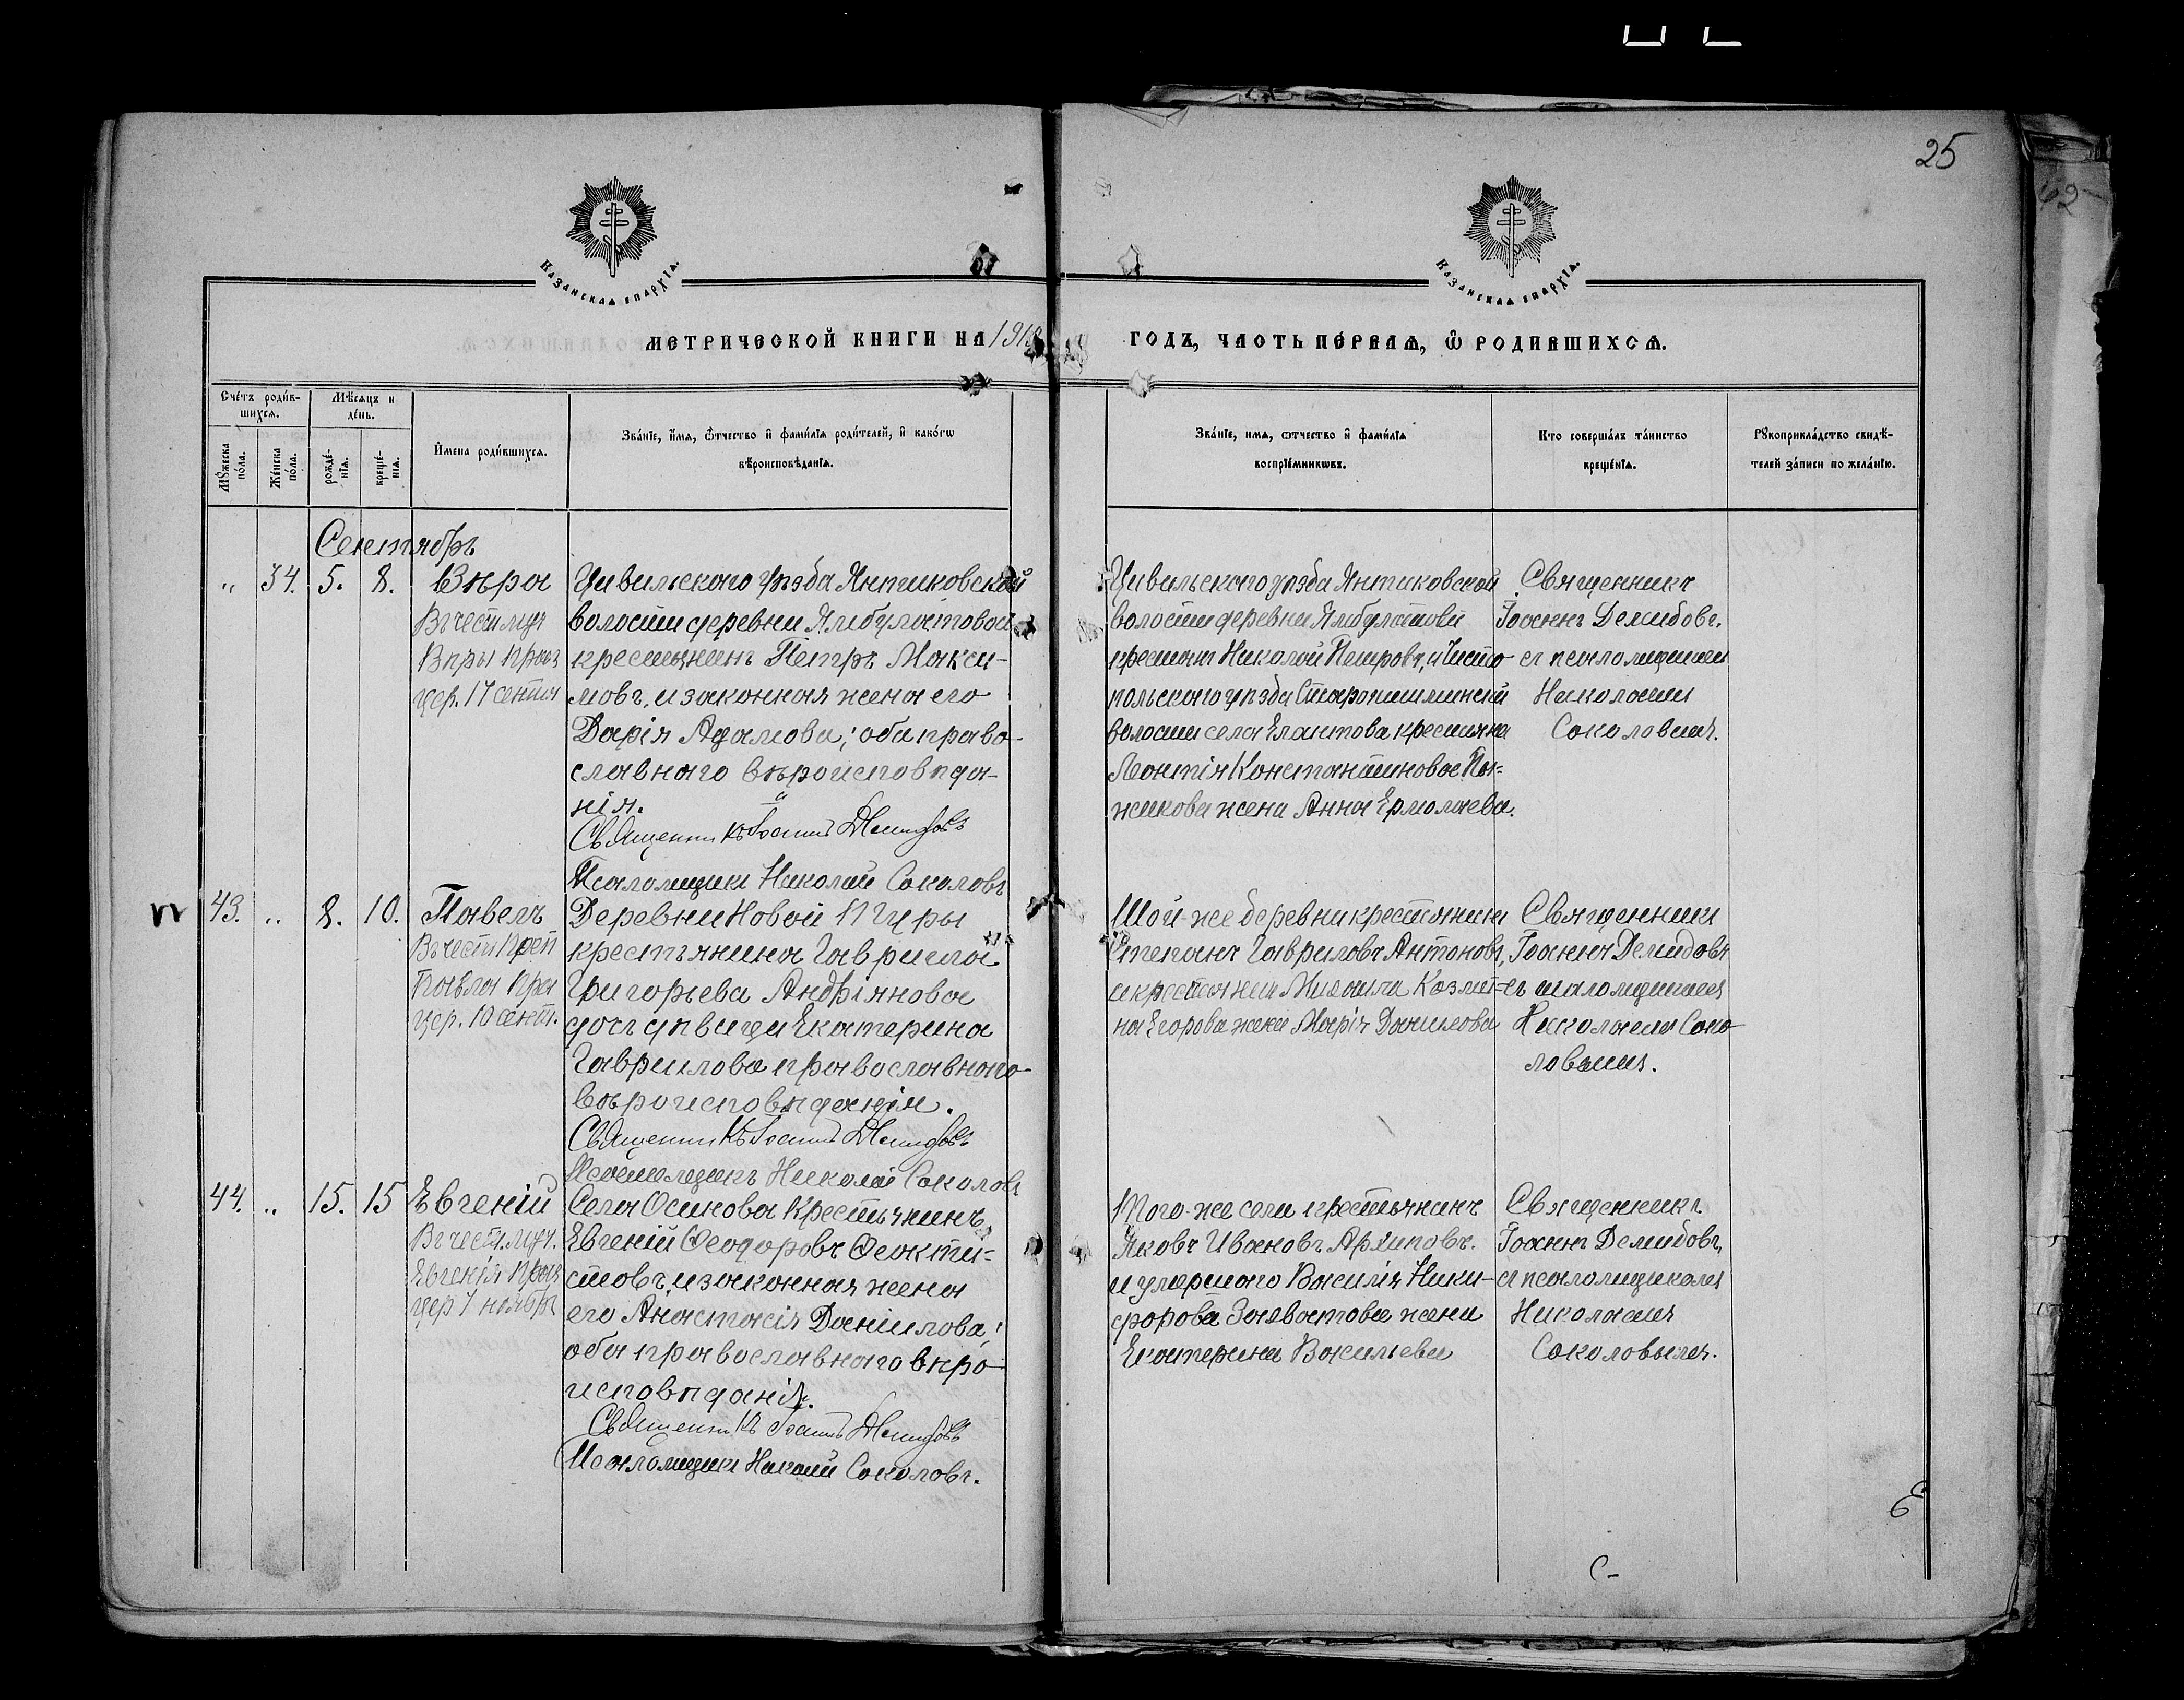 25
62
Казанская епархїа.
Казанская епархїа.
МЕТРИЧЕСКОЙ КНИГИ НА 1918
ГОДЪ, ЧАСТЬ ПЕРВАЯ, Ѡ РОДИВШИХСЯ.
Счетъ родив-
шихся.
Мужеска
пола.
Женска
пола.
Мѣсяцъ и
день.
рожде-
нїя.
креще-
нїя.
Имена родившихся.
Званїе, имя, ѿчество и фамилїя родителей, и какогѡ
вѣроисповѣданїя.
Званїе, имя, ѡтчество и фамилїя
воспрїемникѡвъ.
Кто совершалъ таинство
крещенїя.
Рꙋкоприкладство свидѣ-
телей записи по желанїю.
Сентябрь
„ 34. 5. 8.
Вѣра
Въ честь муч
Вѣры праз
цер. 17 сентя
Цивильскаго уѣзда Янтиковской
волости деревни Ямбулатовой
крестьянинъ Петръ Макси-
мовъ, и законная жена его
Дарія Адамова; оба право-
славнаго вѣроисповѣда-
нія.
Священникъ Іоаннъ Демидовъ
Псаломщикъ Николай Соколовъ
Цивильскаго уѣзда Янтиковской
волости деревни Ямбулатовой
крестьян Николай Петровъ, и Чисто-
польскаго уѣзда Старошешминской
волости села Елантова крестьяна
Леонтія Константинова
жена Анна Ермолаева.
Священникъ
Іоаннъ Демидовъ,
съ псаломщикомъ
Николаемъ
Соколовымъ.
43. „ 8. 10.
Павелъ
Въ честь Преп
Павла праз
цер. 10 сент.
Деревни Новой Ищуры
крестьянина Гавриила
Григорьева Андріянова
дочь дѣвица Екатерина
Гавриилова православнаго
вѣроисповѣданія.
Священникъ Іоаннъ Демидовъ
Псаломщикъ Николай Соколовъ
Той-же деревни крестьянинъ
Степанъ Гавриловъ Антоновъ,
и крестьянина Михаила Козми-
на Егорова жена Марія Данилова
Священникъ
Іоаннъ Демидовъ
съ псаломщикомъ
Николаемъ Соко-
ловымъ.
44. „ 15. 15
Евгеній
Въ чест. муч.
Евгенія праз
цер 7 ноября
Села Осинова Крестьянинъ
Евгеній Ѳеодоровъ Ѳеокти-
стовъ, и законная жена
его Анастасія Даніилова;
оба православнаго вѣро-
исповѣданія.
Священникъ Іоаннъ Демидовъ
Псаломщикъ Николай Соколовъ.
Того-же села крестьянинъ
Яковъ Ивановъ Архиповъ.
и умершаго Василія Ники-
форова жена
Екатерина Васильева
Священникъ
Іоаннъ Демидовъ,
съ псаломщикомъ
Николаемъ
Соколовымъ.